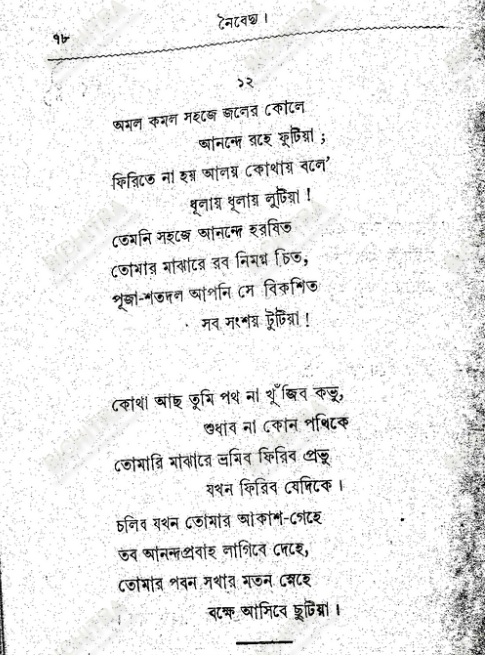 নৈবেদ্য।
১৮
১২
অমল কমল সহজে জলের কোলে
আনন্দে রহে ফুটিয়া ;
ফিরিতে না হয় আলয় কোথায় বলে'
ধূলায় ধূলায় লুটিয়া !
তেমনি সহজে আনন্দে হরষিত
তোমার মাঝারে রব নিমগ্ন চিত,
পূজা-শতদল আপনি সে বিকশিত
সব সংশয় টুটিয়া !
কোথা আছ তুমি পথ না খুঁজিব কভু,
শুধাব না কোন পথিকে
তোমারি মাঝারে ভ্রমিব ফিরিব প্রভু
যখন ফিরিব যেদিকে ।
চলিব যখন তোমার আকাশ-গেহে
তব আনন্দপ্রবাহ লাগিবে দেহে,
তোমার পবন সখার মতন স্নেহে
বক্ষে আসিবে ছুটিয়া ।